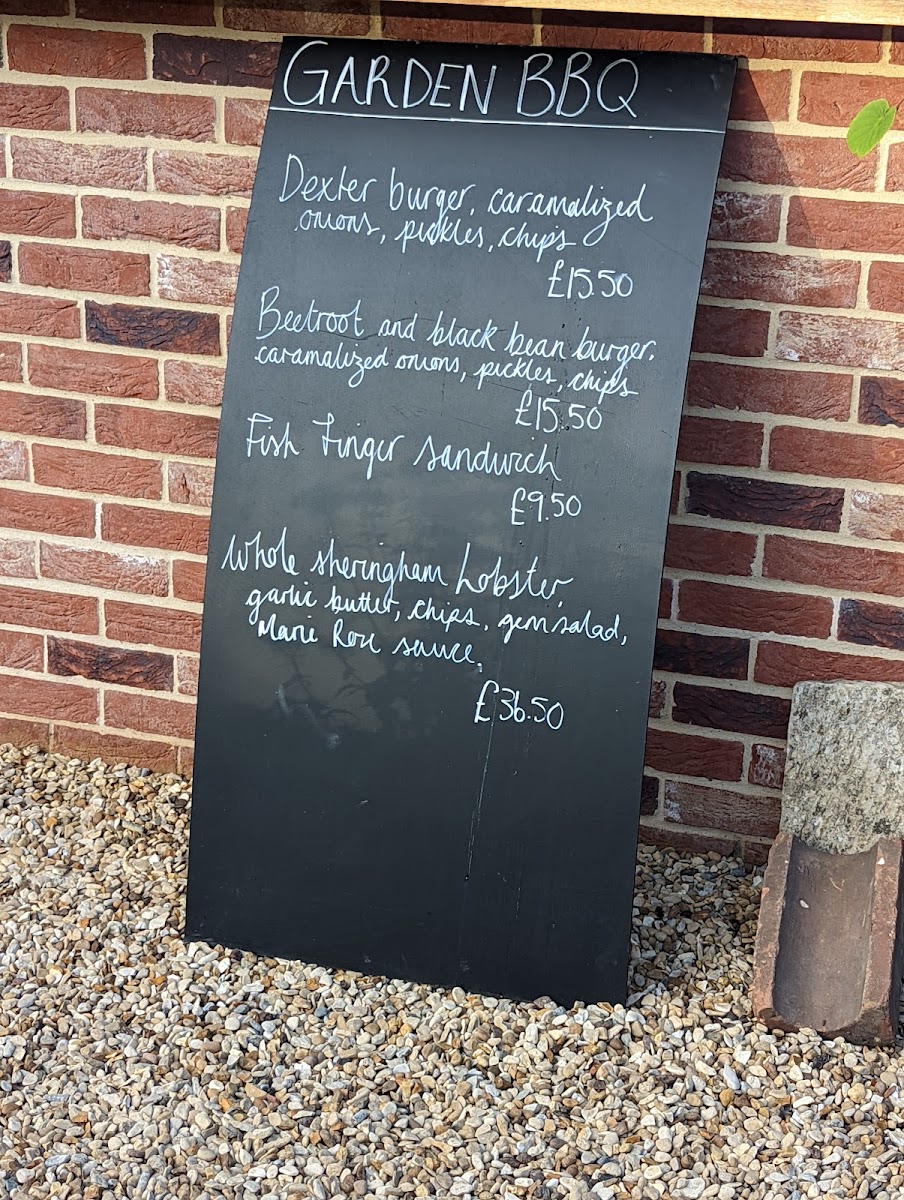 GARDEN BBQ
Dexter burger, caramalized
onions, pickles, chips
£15.50
Beetroot and black bean burger,
caramalized onions, pickles, chips
£15.50
Fish Finger sandwich
£9.50
Whole sheringham Lobster,
garlic butter, chips, gem salad,
Marie Rose sauce,
£36.50